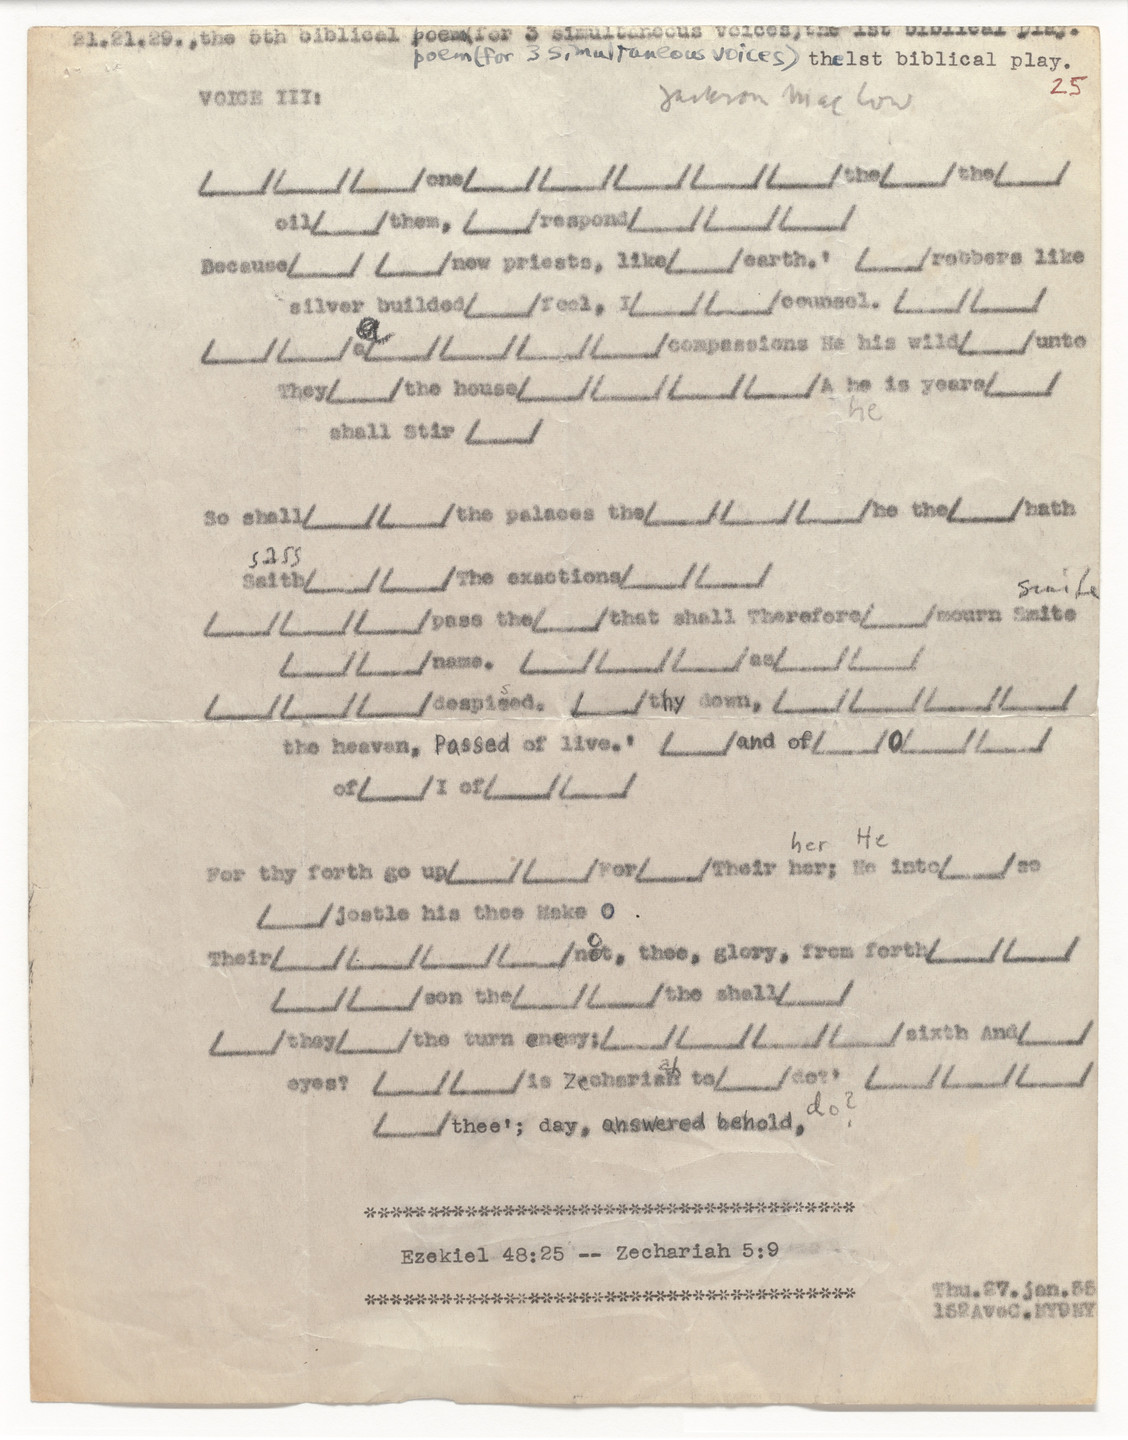 21.21.29.,the 5th biblical poem(for 3 simultaneous voices)the 1st biblical play.
poem(for 3 simultaneous voices) the1st biblical play.
25
VOICE III: Jackson Mac Low
/___//___//___/one/___//___//___//___//___/the/___/the/___/
oil/___/them, /___/respond/___//___//___/
Because/___/ /___/new priests, like/___/earth.' /___/robbers like
silver builded/___/feel, I/___//___/counsel. /___//___/
/___//___/a/___//___//___//___/compassions He his wild/___/unto
They/___/the house/___//___//___//___/A he is years/___/
he
shall Stir /___/
So shall/___//___/the palaces the/___//___//___/he the/___/hath
sass
Saith/___//___/The exactions/___//___/
smite
/___//___//___/pass the/___/that shall Therefore/___/mourn Smite
/___//___/name. /___//___//___/as/___//___/
s
/___//___//___/despised. /___/thy down, /___//___//___//___/
the heaven, Passed of live.' /___/and of/___/O/___//___/
of/___/I of/___//___/
her He
For thy forth go up/___//___/For/___/Their her; He into/___/so
/___/jostle his thee Make O .
o
Their/___//___//___//___/not, thee, glory, from forth/___//___/
/___//___/son the/___//___/the shall/___/
/___/they/___/the turn enemy;/___//___//___//___/sixth And/___/
ah
eyes? /___//___/is Zechariah to/___/do?' /___//___//___/
do?
/___/thee'; day, answered behold,
***************************************
Ezekiel 48:25 -- Zechariah 5:9
***************************************
Thu.27.jan.55
152AveC.NY9NY